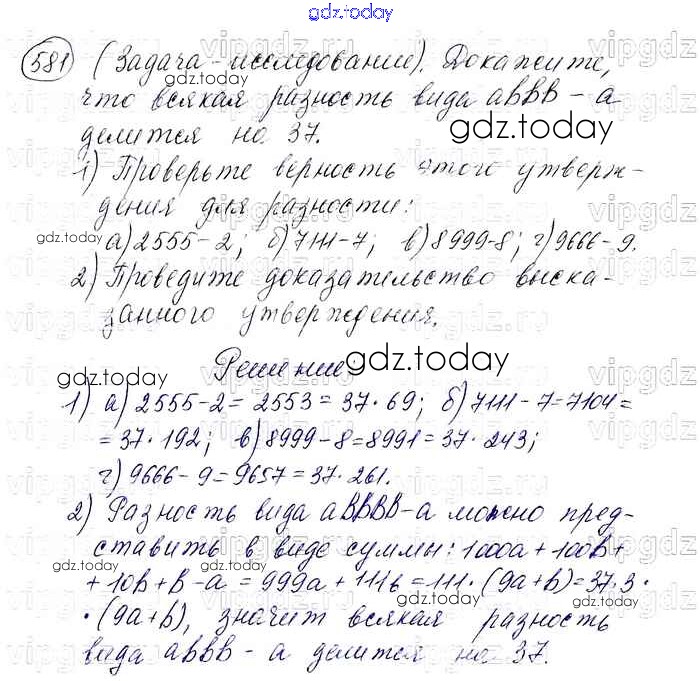 gdz.today
581 (Задача - исследование). Докажите,
что всякая разность вида aBBB - a
делится на 37.
gdz.today
1) Проверьте верность этого утверж-
дения для разности:
gdz.today
а) 2555-2; б) 7111-7; в) 8999-8; г) 9666-9.
2) Проведите доказательство выска-
занного утверждения.
Решение.
gdz.today
1) а) 2555-2 = 2553 = 37·69; б) 7111-7=7104=
= 37·192; в) 8999-8=8991=37·243;
г) 9666-9=9657=37·261.
2) Разность вида aBBBB-a можно пред-
ставить в виде суммы: 1000a+100b+
gdz.today
+10b+b-a = 999a+111b=111·(9a+b)=37·3·
·(9a+b), значит всякая разность
вида aBBB-a делится на 37.
gdz.today
gdz.today